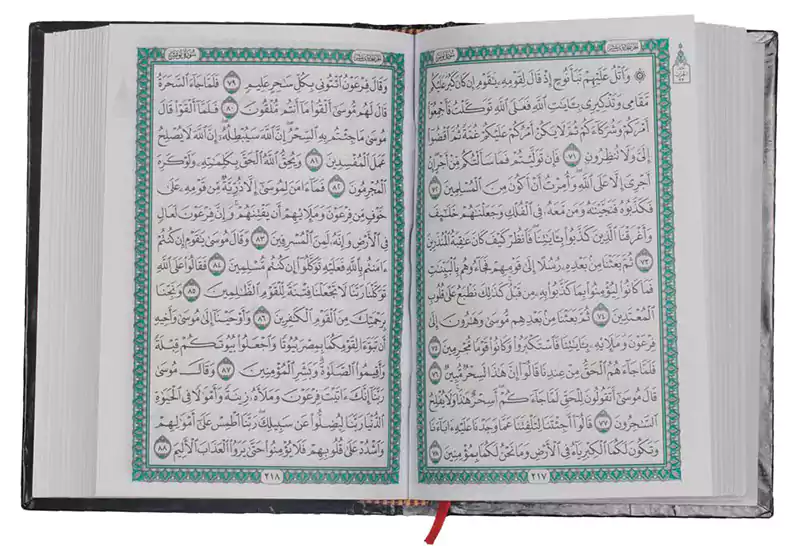 الجزء الحادي عشر
سورة يونس
۞ وَٱتۡلُ عَلَيۡهِمۡ نَبَأَ نُوحٍ إِذۡ قَالَ لِقَوۡمِهِۦ يَٰقَوۡمِ إِن كَانَ كَبُرَ عَلَيۡكُم
مَّقَامِي وَتَذۡكِيرِي بِـَٔايَٰتِ ٱللَّهِ فَعَلَى ٱللَّهِ تَوَكَّلۡتُ فَأَجۡمِعُوٓاْ
أَمۡرَكُمۡ وَشُرَكَآءَكُمۡ ثُمَّ لَا يَكُنۡ أَمۡرُكُمۡ عَلَيۡكُمۡ غُمَّةٗ ثُمَّ ٱقۡضُوٓاْ
إِلَيَّ وَلَا تُنظِرُونِ ٧١ فَإِن تَوَلَّيۡتُمۡ فَمَا سَأَلۡتُكُم مِّنۡ أَجۡرٍۖ إِنۡ
أَجۡرِيَ إِلَّا عَلَى ٱللَّهِۖ وَأُمِرۡتُ أَنۡ أَكُونَ مِنَ ٱلۡمُسۡلِمِينَ ٧٢
فَكَذَّبُوهُ فَنَجَّيۡنَٰهُ وَمَن مَّعَهُۥ فِي ٱلۡفُلۡكِ وَجَعَلۡنَٰهُمۡ خَلَٰٓئِفَ
وَأَغۡرَقۡنَا ٱلَّذِينَ كَذَّبُواْ بِـَٔايَٰتِنَاۖ فَٱنظُرۡ كَيۡفَ كَانَ عَٰقِبَةُ ٱلۡمُنذَرِينَ
٧٣ ثُمَّ بَعَثۡنَا مِنۢ بَعۡدِهِۦ رُسُلًا إِلَىٰ قَوۡمِهِمۡ فَجَآءُوهُم بِٱلۡبَيِّنَٰتِ
فَمَا كَانُواْ لِيُؤۡمِنُواْ بِمَا كَذَّبُواْ بِهِۦ مِن قَبۡلُۚ كَذَٰلِكَ نَطۡبَعُ عَلَىٰ قُلُوبِ
ٱلۡمُعۡتَدِينَ ٧٤ ثُمَّ بَعَثۡنَا مِنۢ بَعۡدِهِم مُّوسَىٰ وَهَٰرُونَ إِلَىٰ
فِرۡعَوۡنَ وَمَلَإِيْهِۦ بِـَٔايَٰتِنَا فَٱسۡتَكۡبَرُواْ وَكَانُواْ قَوۡمٗا مُّجۡرِمِينَ ٧٥
فَلَمَّا جَآءَهُمُ ٱلۡحَقُّ مِنۡ عِندِنَا قَالُوٓاْ إِنَّ هَٰذَا لَسِحۡرٞ مُّبِينٞ ٧٦
قَالَ مُوسَىٰٓ أَتَقُولُونَ لِلۡحَقِّ لَمَّا جَآءَكُمۡۖ أَسِحۡرٌ هَٰذَا وَلَا يُفۡلِحُ
ٱلسَّٰحِرُونَ ٧٧ قَالُوٓاْ أَجِئۡتَنَا لِتَلۡفِتَنَا عَمَّا وَجَدۡنَا عَلَيۡهِ ءَابَآءَنَا
وَتَكُونَ لَكُمَا ٱلۡكِبۡرِيَآءُ فِي ٱلۡأَرۡضِ وَمَا نَحۡنُ لَكُمَا بِمُؤۡمِنِينَ ٧٨
٢١٧
الجزء الحادي عشر
سورة يونس
وَقَالَ فِرۡعَوۡنُ ٱئۡتُونِي بِكُلِّ سَٰحِرٍ عَلِيمٖ ٧٩ فَلَمَّا جَآءَ ٱلسَّحَرَةُ
قَالَ لَهُم مُّوسَىٰٓ أَلۡقُواْ مَآ أَنتُم مُّلۡقُونَ ٨٠ فَلَمَّآ أَلۡقَوۡاْ قَالَ
مُوسَىٰ مَا جِئۡتُم بِهِ ٱلسِّحۡرُۖ إِنَّ ٱللَّهَ سَيُبۡطِلُهُۥٓ إِنَّ ٱللَّهَ لَا يُصۡلِحُ
عَمَلَ ٱلۡمُفۡسِدِينَ ٨١ وَيُحِقُّ ٱللَّهُ ٱلۡحَقَّ بِكَلِمَٰتِهِۦ وَلَوۡ كَرِهَ
ٱلۡمُجۡرِمُونَ ٨٢ فَمَآ ءَامَنَ لِمُوسَىٰٓ إِلَّا ذُرِّيَّةٞ مِّن قَوۡمِهِۦ عَلَىٰ
خَوۡفٖ مِّن فِرۡعَوۡنَ وَمَلَإِيْهِمۡ أَن يَفۡتِنَهُمۡۚ وَإِنَّ فِرۡعَوۡنَ لَعَالٖ
فِي ٱلۡأَرۡضِ وَإِنَّهُۥ لَمِنَ ٱلۡمُسۡرِفِينَ ٨٣ وَقَالَ مُوسَىٰ يَٰقَوۡمِ إِن كُنتُمۡ
ءَامَنتُم بِٱللَّهِ فَعَلَيۡهِ تَوَكَّلُوٓاْ إِن كُنتُم مُّسۡلِمِينَ ٨٤ فَقَالُواْ عَلَى ٱللَّهِ
تَوَكَّلۡنَا رَبَّنَا لَا تَجۡعَلۡنَا فِتۡنَةٗ لِّلۡقَوۡمِ ٱلظَّٰلِمِينَ ٨٥ وَنَجِّنَا
بِرَحۡمَتِكَ مِنَ ٱلۡقَوۡمِ ٱلۡكَٰفِرِينَ ٨٦ وَأَوۡحَيۡنَآ إِلَىٰ مُوسَىٰ وَأَخِيهِ
أَن تَبَوَّءَا لِقَوۡمِكُمَا بِمِصۡرَ بُيُوتٗا وَٱجۡعَلُواْ بُيُوتَكُمۡ قِبۡلَةٗ
وَأَقِيمُواْ ٱلصَّلَوٰةَۗ وَبَشِّرِ ٱلۡمُؤۡمِنِينَ ٨٧ وَقَالَ مُوسَىٰ
رَبَّنَآ إِنَّكَ ءَاتَيۡتَ فِرۡعَوۡنَ وَمَلَأَهُۥ زِينَةٗ وَأَمۡوَٰلٗا فِي ٱلۡحَيَوٰةِ
ٱلدُّنۡيَا رَبَّنَا لِيُضِلُّواْ عَن سَبِيلِكَۖ رَبَّنَا ٱطۡمِسۡ عَلَىٰٓ أَمۡوَٰلِهِمۡ
وَٱشۡدُدۡ عَلَىٰ قُلُوبِهِمۡ فَلَا يُؤۡمِنُواْ حَتَّىٰ يَرَوُاْ ٱلۡعَذَابَ ٱلۡأَلِيمَ ٨٨
٢١٨